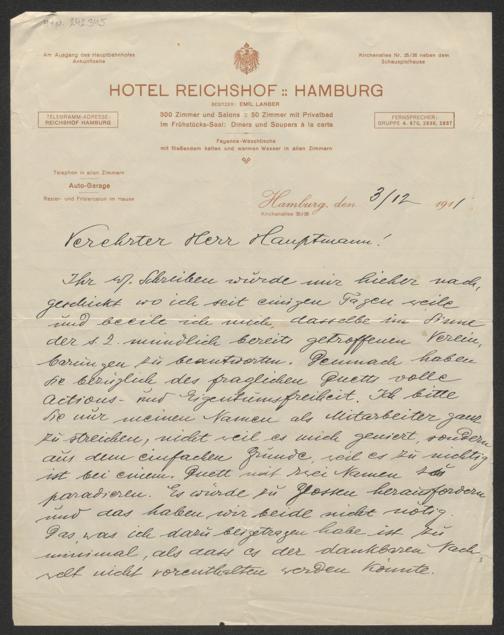 Am Ausgang des Hauptbahnhofes
Ankunftseite
Kirchenallee Nr. 35/36 neben dem
Schauspielhause
HOTEL REICHSHOF :: HAMBURG
BESITZER: EMIL LANGER
TELEGRAMM-ADRESSE:
REICHSHOF HAMBURG
300 Zimmer und Salons :: 50 Zimmer mit Privatbad
Im Frühstücks-Saal: Diners und Soupers à la carte
FERNSPRECHER:
GRUPPE 4, 670, 2836, 2837
Fayence-Waschtische
mit fließendem kalten und warmen Wasser in allen Zimmern
Telephon in allen Zimmern
Auto-Garage
Rasier- und Frisiersalon im Hause
Hamburg, den 3/12 1911
Kirchenallee 35/36
Verehrter Herr Hauptmann!
Ihr w. Schreiben wurde mir hieher nach,
geschickt wo ich seit einigen Tagen weile
und beeile ich mich, dasselbe im Sinne
der s. Z. mündlich bereits getroffenen Verein,
barungen zu beantworten. Demnach haben
Sie bezüglich des fraglichen Duetts volle
Actions- und Eigentumsfreiheit. Ich bitte
Sie nur meinen Namen als Mitarbeiter ganz
zu streichen, nicht weil es mich geniert, sondern
aus dem einfachen Grunde, weil es zu nichtig
ist bei einem Duett mit zwei Namen zu
paradieren. Es würde zu Glossen herausfordern
und das haben wir beide nicht nötig.
Das, was ich dazu beigetragen habe ist zu
minimal, als dass es der dankbaren Nach,
welt nicht vorenthalten werden könnte.